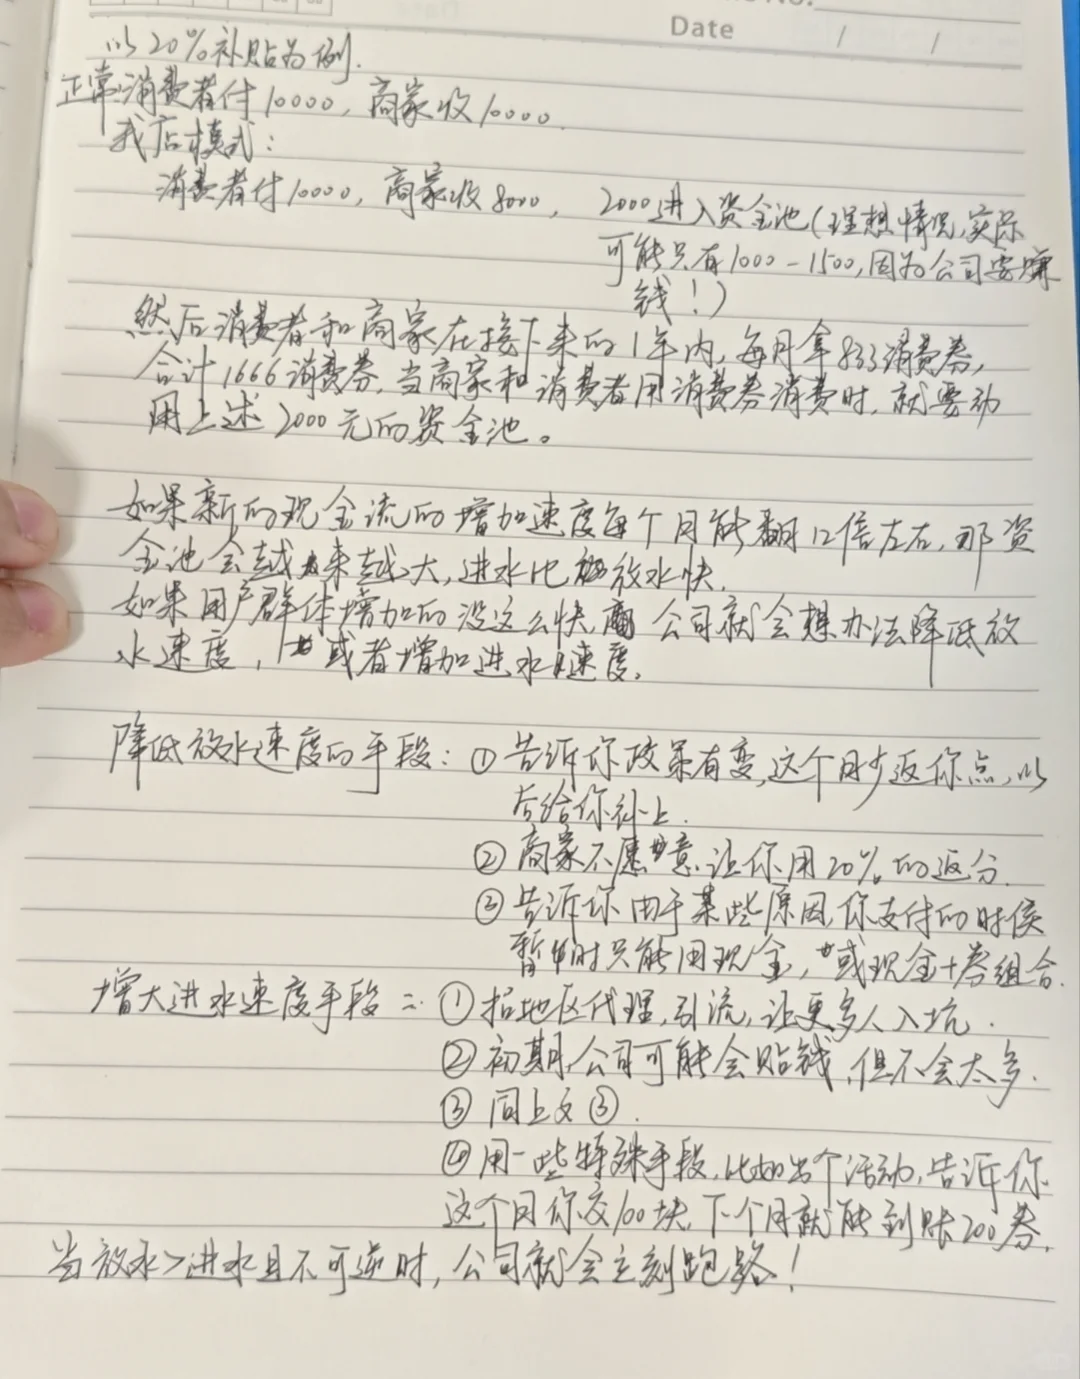 Date / /
以20%补贴为例.
正常消费者付10000,商家收10000.
我店模式:
消费者付10000,商家收8000, 2000进入资金池(理想情况,实际
可能只有1000-1500,因为公司要赚
钱!)
然后消费者和商家在接下来的1年内,每月拿833消费券,
合计1666消费券,当商家和消费者用消费券消费时,就要动
用上述2000元的资金池。
如果新的现金流的增加速度每个月能翻12倍左右,那资
金池会越来越大,进水比放水快.
如果用户群体增加的没这么快, 公司就会想办法降低放
水速度, 或者增加进水速度.
降低放水速度的手段: ①告诉你政策有变,这个月少返你点,以
后给你补上.
②商家不愿意让你用20%的返分.
③告诉你由于某些原因你支付的时侯
暂时只能用现金,或现金+券组合.
增大进水速度手段: ①招地区代理,引流,让更多人入坑.
②初期,公司可能会贴钱,但不会太多.
③同上文③.
④用一些特殊手段,比如出个活动,告诉你
这个月你交100块,下个月就能到账200券.
当放水>进水且不可逆时,公司就会立刻跑路!